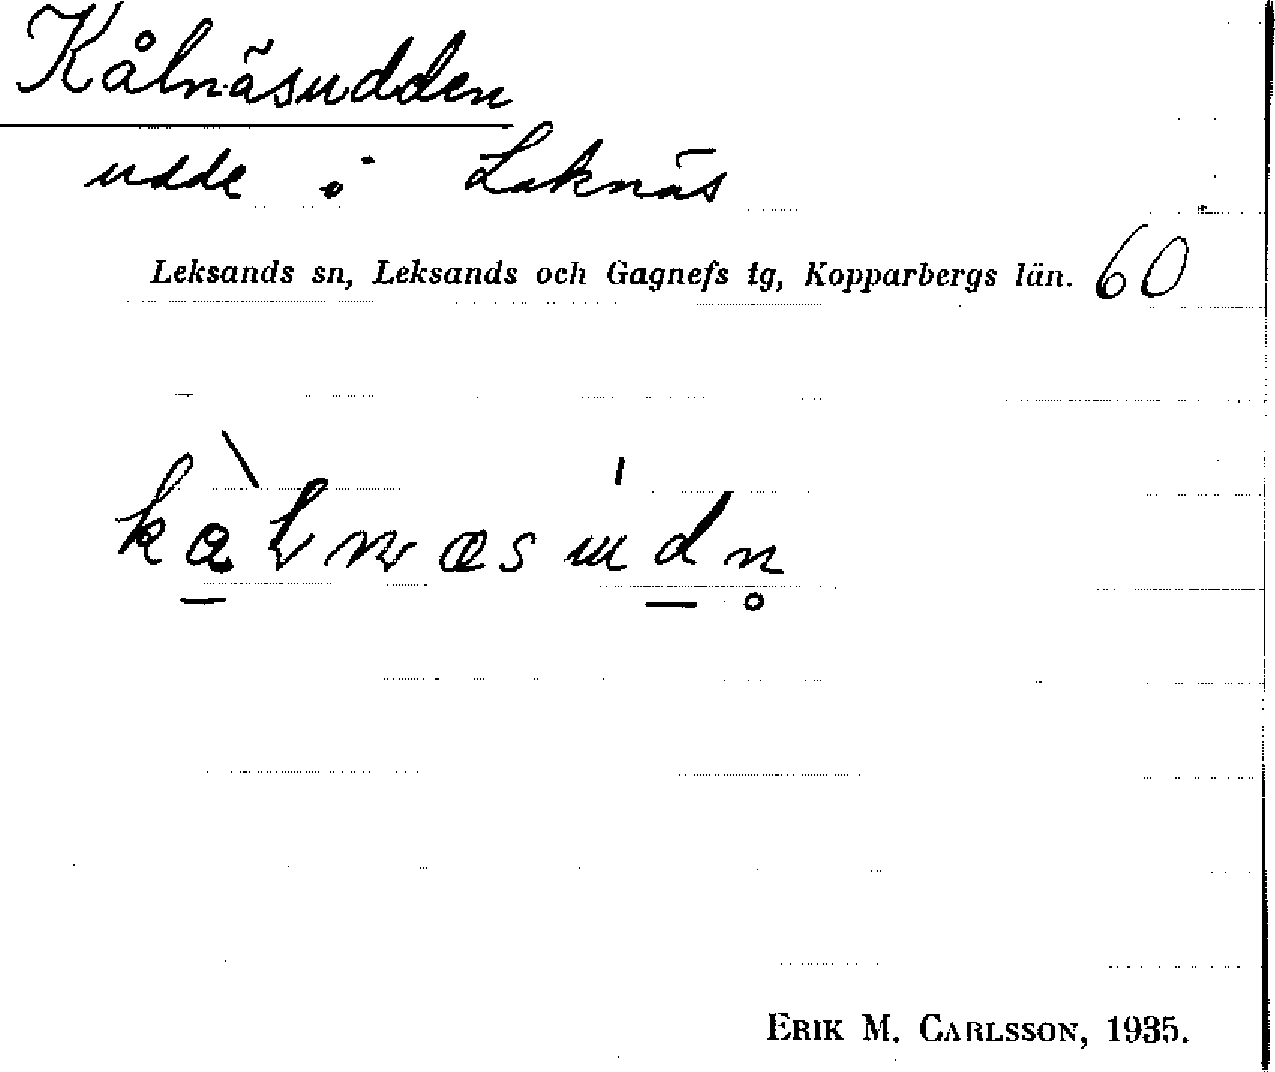 Kålnäsudden
udde i Laknäs
Leksands sn, Leksands och Gagnefs tg, Kopparbergs län. 60
ERIK M. CARLSSON, 1935.